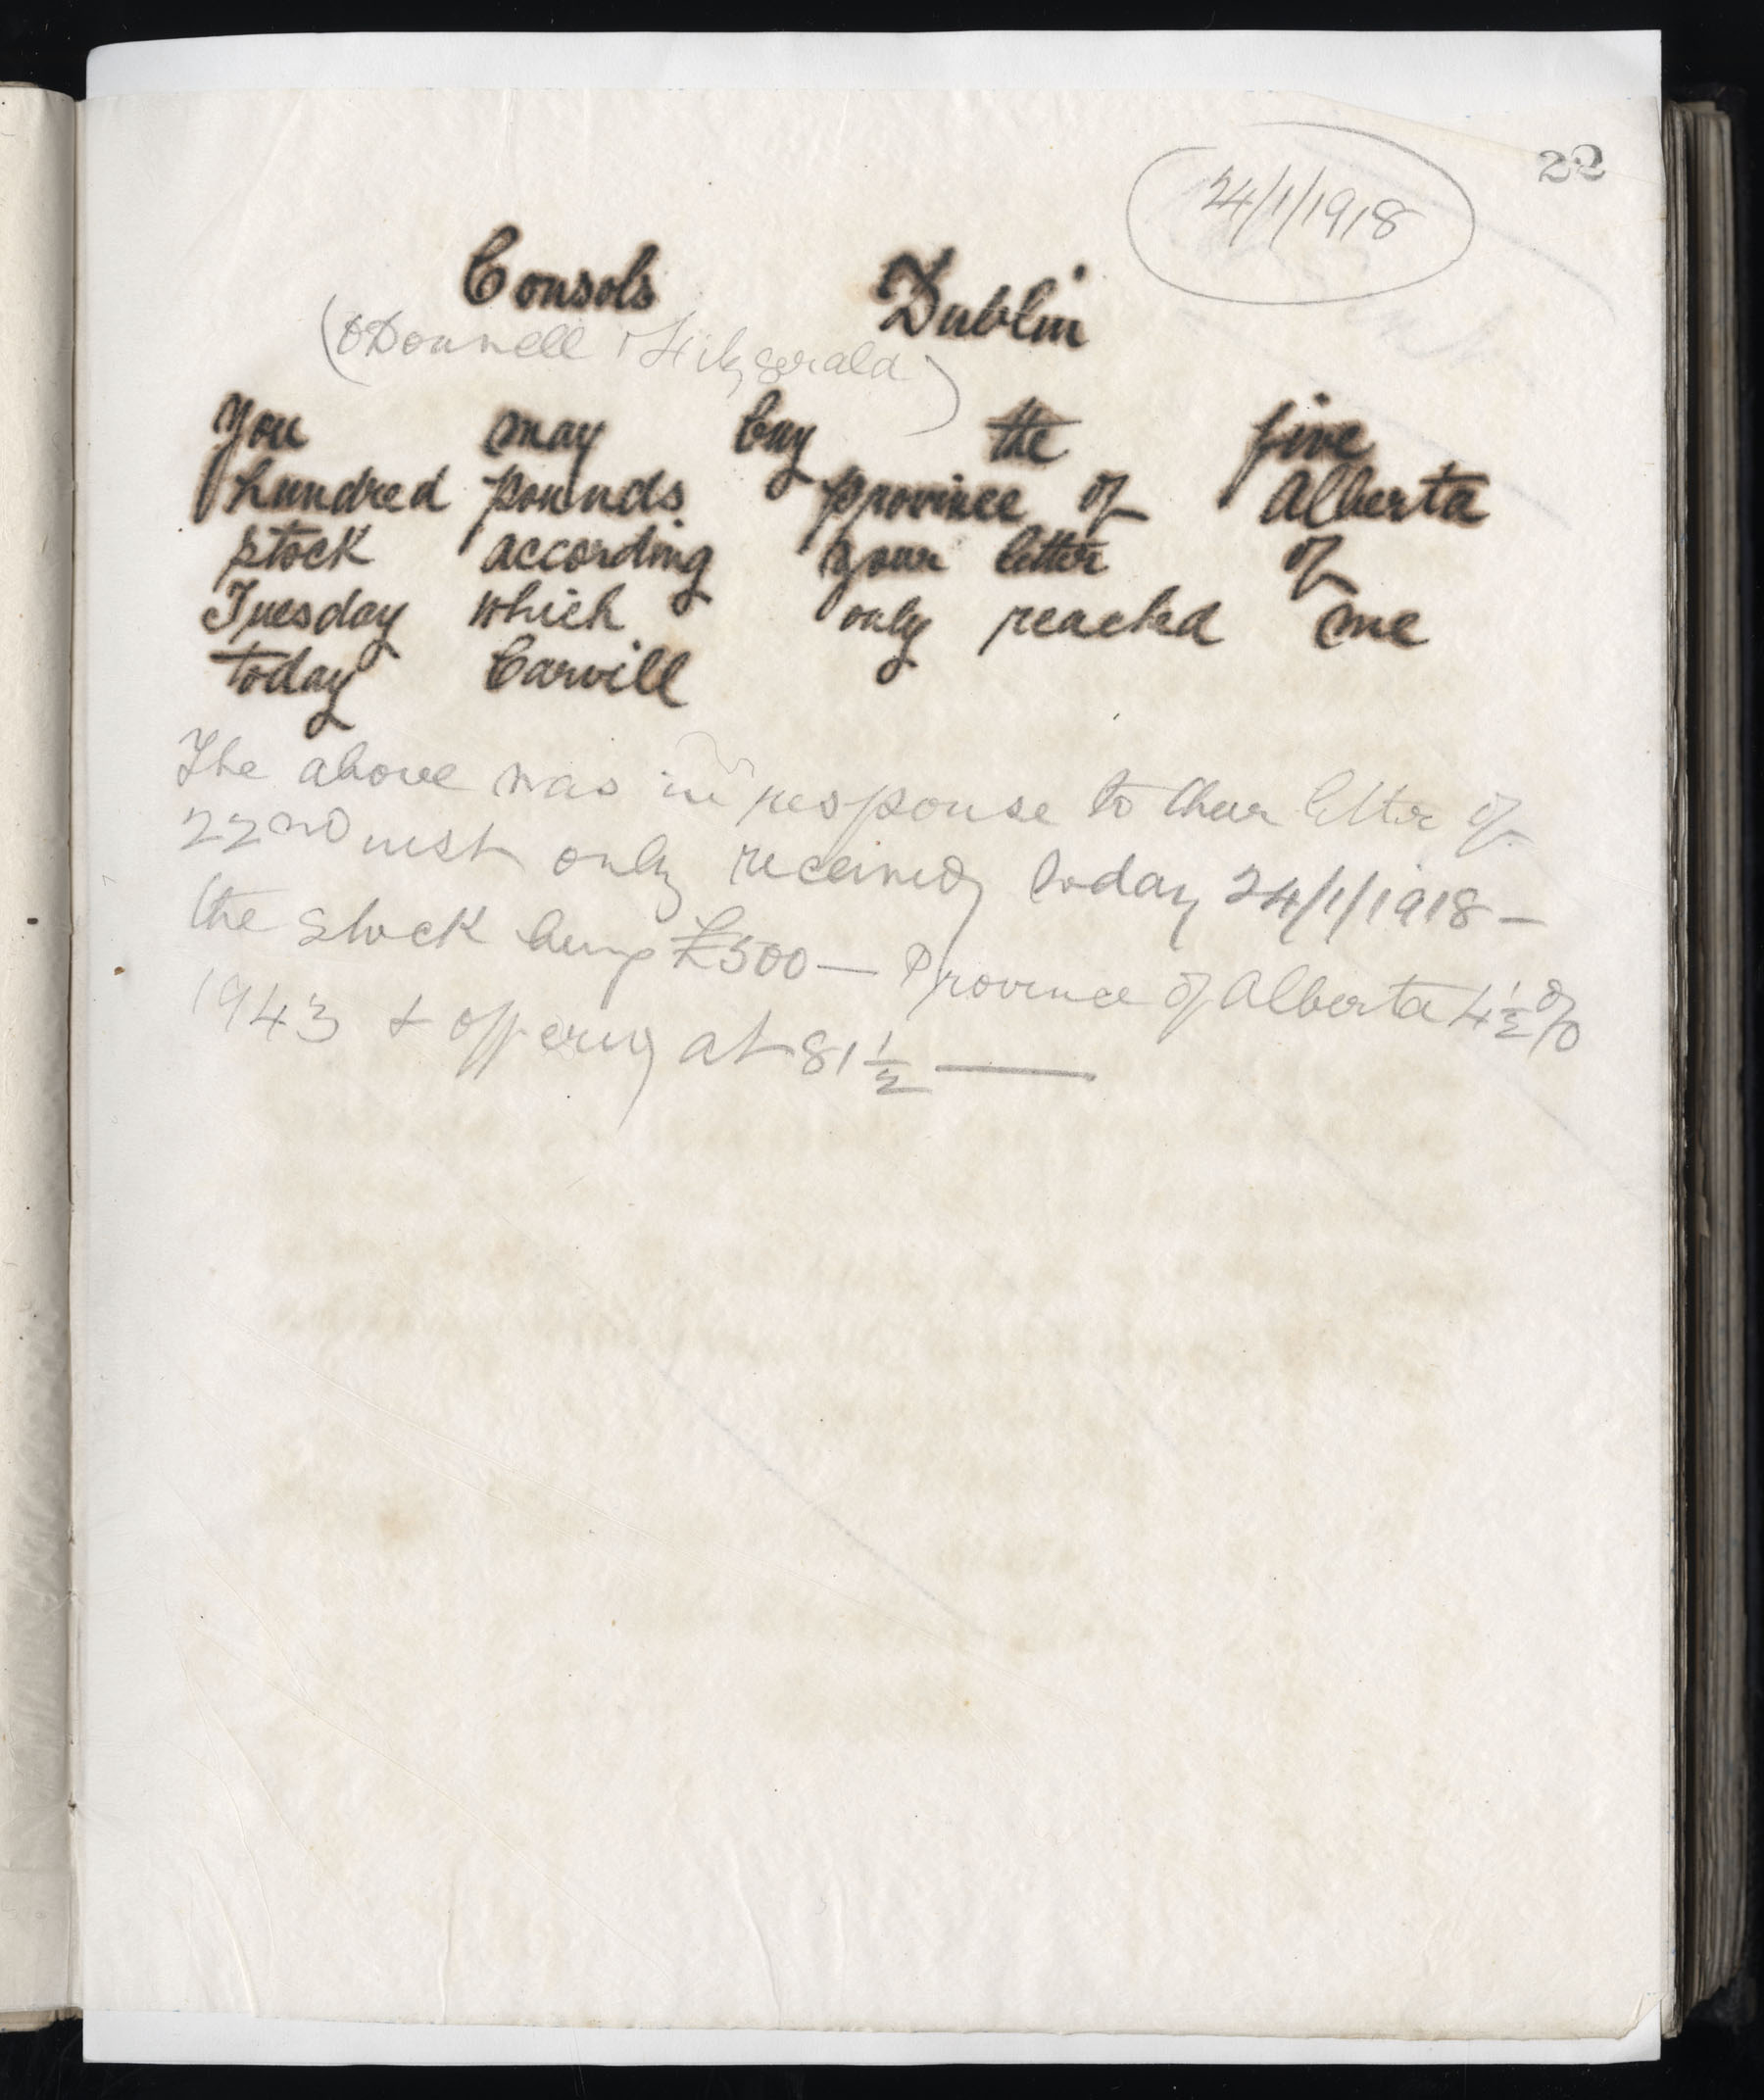 22
24/1/1918
Consols Dublin
(O'Donnell & Fitzgerald)
You may buy the five
hundred pounds province of Alberta
stock according your letter of
Tuesday which only reached me
today Carvill
The above was in response to their letter of
22nd inst only received today 24/1/1918 —
the stock being £500 — Province of Alberta 4½%
1943 & offering at 81½ —